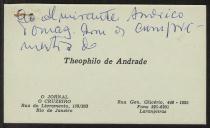 Ao Almirante Américo
Tomaz, com os cumpri-
mentos de
Theophilo de Andrade
O JORNAL
O CRUZEIRO
Rua do Livramento, 189/203
Rio de Janeiro
Rua Gen. Glicério, 486 - 1002
Fone 225-6291
Laranjeiras